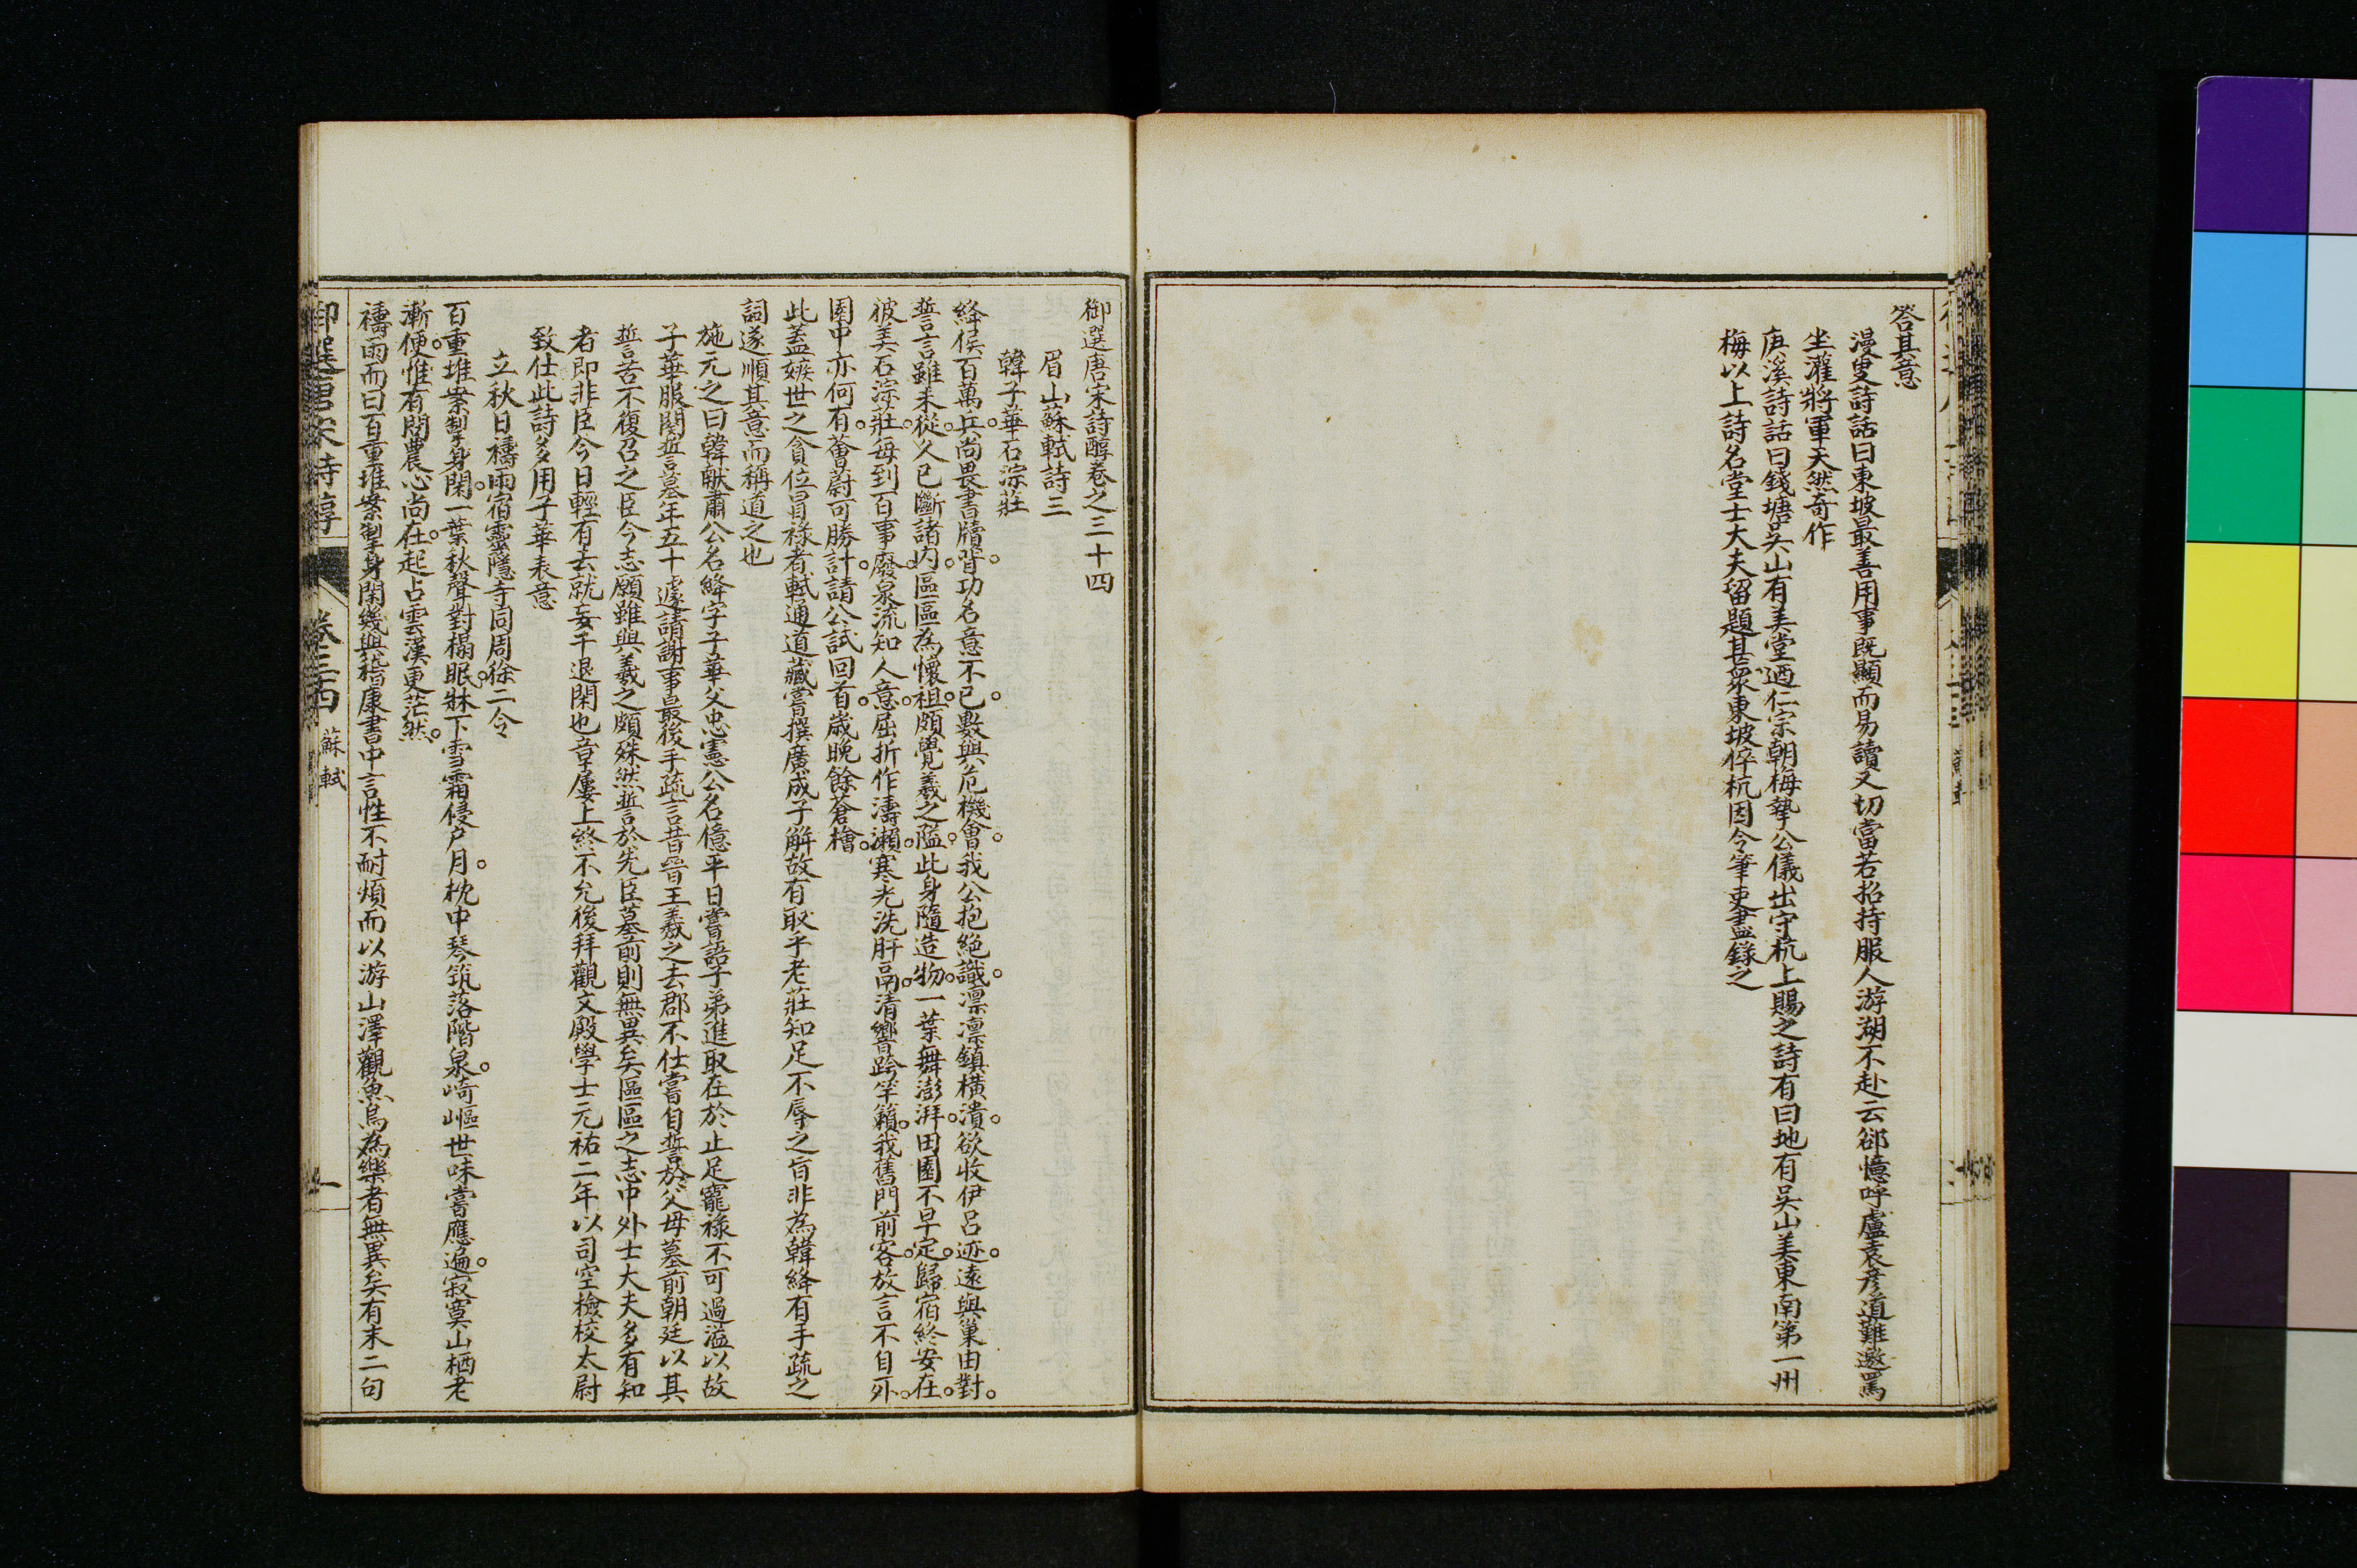 答其意
漫叟詩話曰東坡最善用事既顯而易讀又切當若招持服人游湖不赴云郤憶呼盧袁彦道難邀罵
坐灌將軍天然奇作
庚溪詩話曰錢塘吳山有美堂迺仁宗朝梅摯公儀出守杭上賜之詩有曰地有吳山美東南第一州
梅以上詩名堂士大夫留題甚衆東坡倅杭因令筆吏盡錄之
御選唐宋詩醇卷之三十四
眉山蘇軾詩三
韓子華石淙莊
絳侯百萬兵尚畏書牘背功名意不已數與危機會我公抱絕識凛凛鎮橫潰欲收伊呂迹遠與巢由對
誓言雖未從久已斷諸内區區為懷祖頗覺羲之隘此身隨造物一葉舞澎湃田園不早定歸宿終安在
彼美石淙莊每到百事廢泉流知人意屈折作濤瀨寒光洗肝鬲清響跨竽籟我舊門前客放言不自外
園中亦何有薈蔚可勝計請公試回首歲晚餘蒼檜
此蓋嫉世之貪位冒祿者軾通道藏嘗撰廣成子解故有取乎老莊知足不辱之旨非為韓絳有手疏之
詞遂順其意而稱道之也
施元之曰韓獻肅公名絳字子華父忠憲公名億平日嘗語子弟進取在於止足寵祿不可過溢以故
子華服闋誓墓年五十遽請謝事最後手疏言昔晉王羲之去郡不仕嘗自誓於父母墓前朝廷以其
誓苦不復召之臣今志願雖與羲之頗殊然誓於先臣墓前則無異矣區區之志中外士大夫多有知
者即非臣今日輕有去就妄干退閑也章屢上終不允後拜觀文殿學士元祐二年以司空檢校太尉
致仕此詩多用子華表意
立秋日禱雨宿靈隱寺同周徐二令
百重堆案掣身閑一葉秋聲對榻眠牀下雪霜侵户月枕中琴筑落階泉崎嶇世味嘗應遍寂寞山栖老
漸便惟有閔農心尚在起占雲漢更茫然
禱雨而曰百重堆案掣身閑幾與嵇康書中言性不耐煩而以游山澤觀魚鳥為樂者無異矣有末二句
御選唐宋詩醇 卷三十四 蘇軾 一